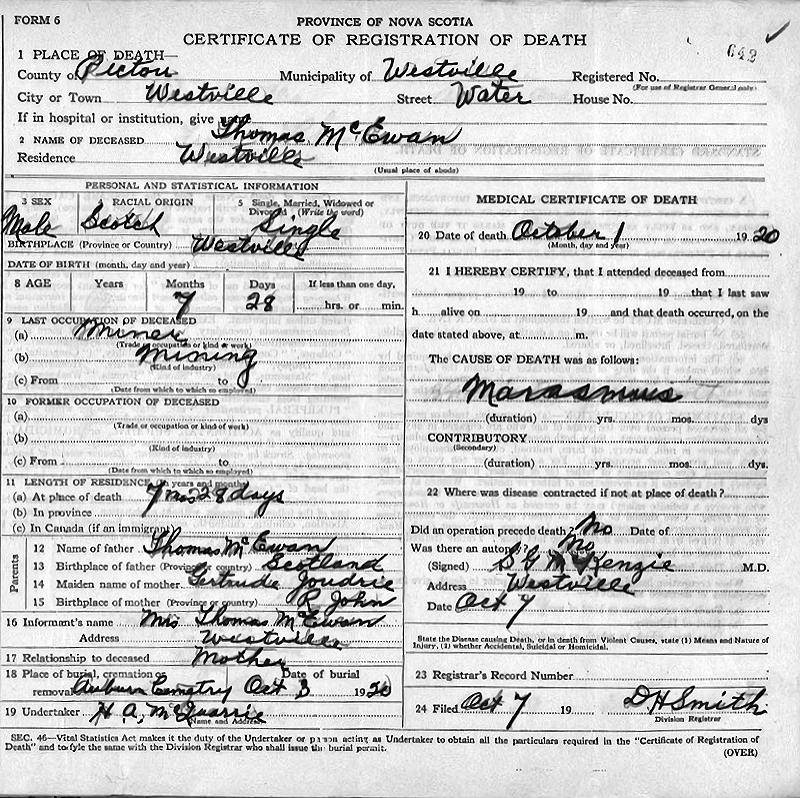 FORM 6
PROVINCE OF NOVA SCOTIA
CERTIFICATE OF REGISTRATION OF DEATH
642
1 PLACE OF DEATH—
County of Pictou Municipality of Westville Registered No.
(For use of Registrar General only)
City or Town Westville Street Water House No.
If in hospital or institution, give
2 NAME OF DECEASED Thomas McEwan
Residence Westville
(Usual place of abode)
PERSONAL AND STATISTICAL INFORMATION
3 SEX Male RACIAL ORIGIN Scotch 5 Single, Married, Widowed or Divorced (Write the word) Single
BIRTHPLACE (Province or Country) Westville
DATE OF BIRTH (month, day and year)
8 AGE Years Months 7 Days 28 If less than one day, hrs. or min.
9 LAST OCCUPATION OF DECEASED
(a) Miner
(Trade or occupation or kind of work)
(b) Mining
(Kind of industry)
(c) From to
(Date from which to which so employed)
10 FORMER OCCUPATION OF DECEASED
(a)
(Trade or occupation or kind of work)
(b)
(Kind of industry)
(c) From to
(Date from which to which so employed)
11 LENGTH OF RESIDENCE (in years and months)
(a) At place of death 7 mos 28 days
(b) In province
(c) In Canada (if an immigrant)
Parents
12 Name of father Thomas McEwan
13 Birthplace of father (Province or country) Scotland
14 Maiden name of mother Gertrude Joudrie
15 Birthplace of mother (Province or country) R John
16 Informant's name Mrs Thomas McEwan
Address Westville
17 Relationship to deceased Mother
18 Place of burial, cremation or removal Auburn Cemetry Date of burial Oct 3 1920
19 Undertaker H A McQuarrie
(Name and Address)
MEDICAL CERTIFICATE OF DEATH
20 Date of death October 1 1920
(Month, day and year)
21 I HEREBY CERTIFY, that I attended deceased from
19 to 19 that I last saw
h alive on 19 and that death occurred, on the
date stated above, at m.
The CAUSE OF DEATH was as follows:
Marasmus
(duration) yrs. mos. dys
CONTRIBUTORY
(Secondary)
(duration) yrs. mos. dys.
22 Where was disease contracted if not at place of death?
Did an operation precede death? No Date of
Was there an autopsy? No
(Signed) S G McKenzie M.D.
Address Westville
Date Oct 7
State the Disease causing Death, or in death from Violent Causes, state (1) Means and Nature of
Injury, (2) whether Accidental, Suicidal or Homicidal.
23 Registrar's Record Number
24 Filed Oct 7 19 D H Smith
Division Registrar
SEC. 46—Vital Statistics Act makes it the duty of the Undertaker or person acting as Undertaker to obtain all the particulars required in the "Certificate of Registration of
Death" and to fyle the same with the Division Registrar who shall issue the burial permit.
(OVER)